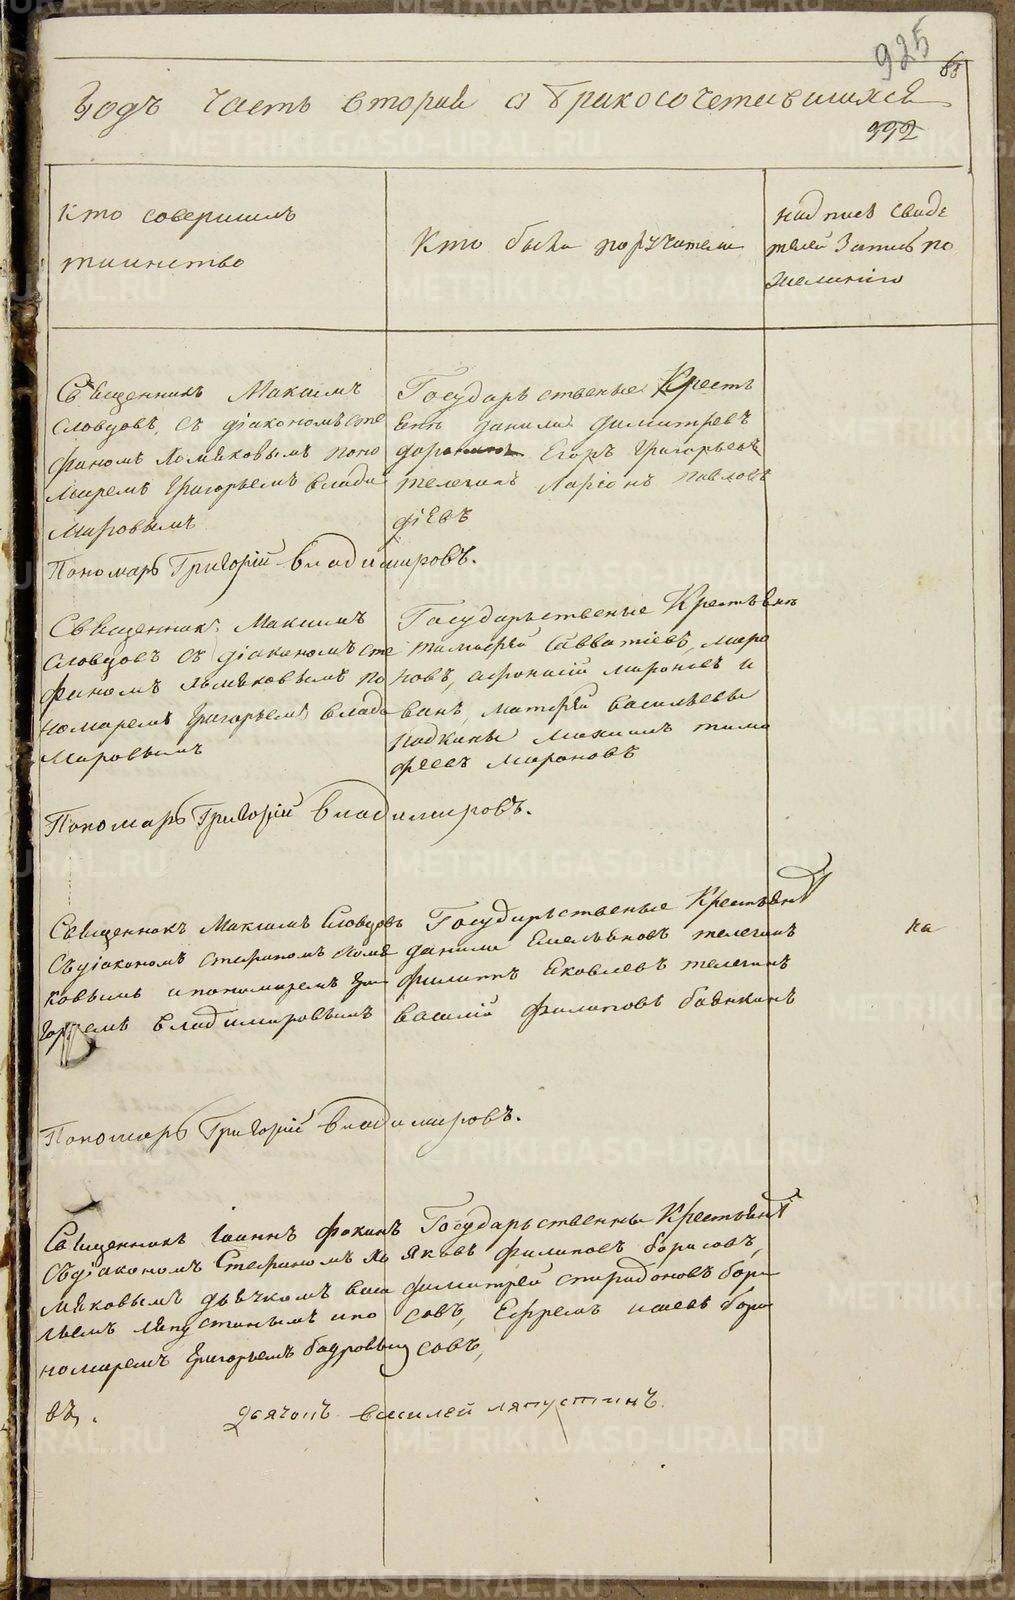 925
88
Годъ Часть вторая о бракосочетавшихся
992
Кто совершилъ
таинство
Кто были поручители
надпись свиде
телей Запись по
желанію
Священникъ Максимъ
Словцовъ, съ діакономъ Сте
фаномъ Хомяковымъ поно
маремъ Григорьемъ Влади
мировымъ
Государственые Кресть
Енѣ данила Димитревъ
Егоръ Григорьевъ
телегинъ Ларіонъ павловъ
Пономарь Григорій Владимировъ.
Священникъ Максимъ
Словцовъ съ діакономъ Сте
фаномъ хомяковымъ по
номаремъ Григорьемъ Влади
мировымъ
Государьственые Крестьѣнѣ
тимофей Савватіевъ, миро
новъ, афонасій мироновъ и
ванъ, матфей васильевы
падкины максимъ тимо
феевъ мироновъ
Пономарь Григорій Владимировъ.
Священнкъ Максимъ Словцовъ
Съ діакономъ стефаномъ хомя
ковымъ и пономаремъ Гри
горьемъ Владимировымъ
Государьственые Крестьянѣ
данила Емельяновъ телегинъ
филиппъ Яковлевъ телегинъ
василій филиповъ бабкинъ
на
Пономарь Григорій Владимировъ.
Священникъ Іоаннъ фокинъ
Съ діакономъ Стефаномъ Хо
мяковымъ дьячкомъ васи
льемъ ляпустинымъ и по
номаремъ Григорьемъ
Государьственны Крестьянѣ
Яковъ филиповъ борисовъ,
димитрей спиридоновъ бори
совъ, Ефремъ исаевъ бори
совъ,
Дьячокъ василей ляпустинъ.